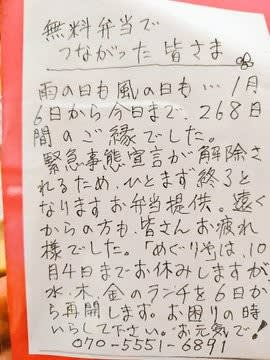 無料弁当で
つながった皆さま
雨の日も風の日も…1月
6日から今日まで、268日
間のご縁でした。
緊急事態宣言が解除さ
れるため、ひとまず終了と
なりますお弁当提供。遠く
からの方も、皆さんお疲れ
様でした。「めぐりやは、10
月4日までお休みしますが
水、木、金のランチを6日か
ら再開します。お困りの時
いらして下さい。お元気で!
070-5551-6891